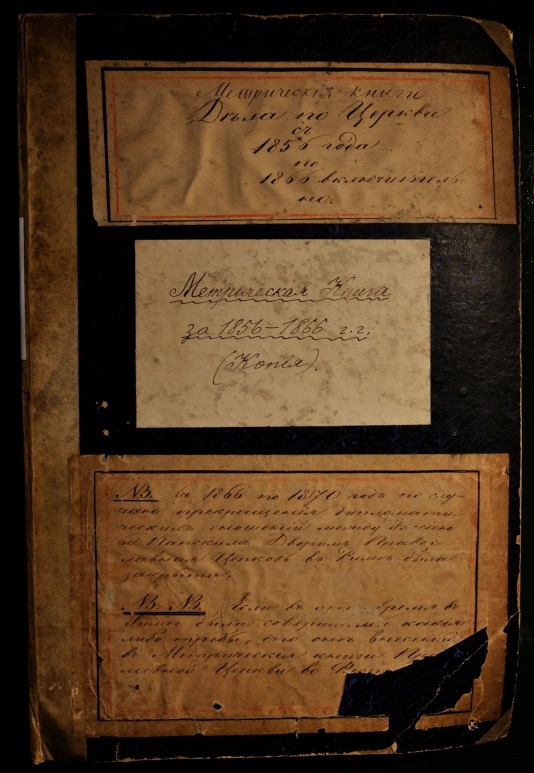 Метрическія книги
Дѣла по Церкви
съ
1856 года
по
1866 включитель-
но.
Метрическая Книга
за 1856–1866 г.г.
(Копія).
NB. Съ 1866 по 1870 годъ по слу-
чаю прекращенія дипломати-
ческихъ сношеній между
и Папскимъ Дворомъ Правос-
лавная Церковь въ Римѣ была
закрыта.
NB. NB. Если въ это время въ
Римѣ были совершаемы какія
либо требы, то онѣ внесены
въ Метрическія книги
славной Церкви во